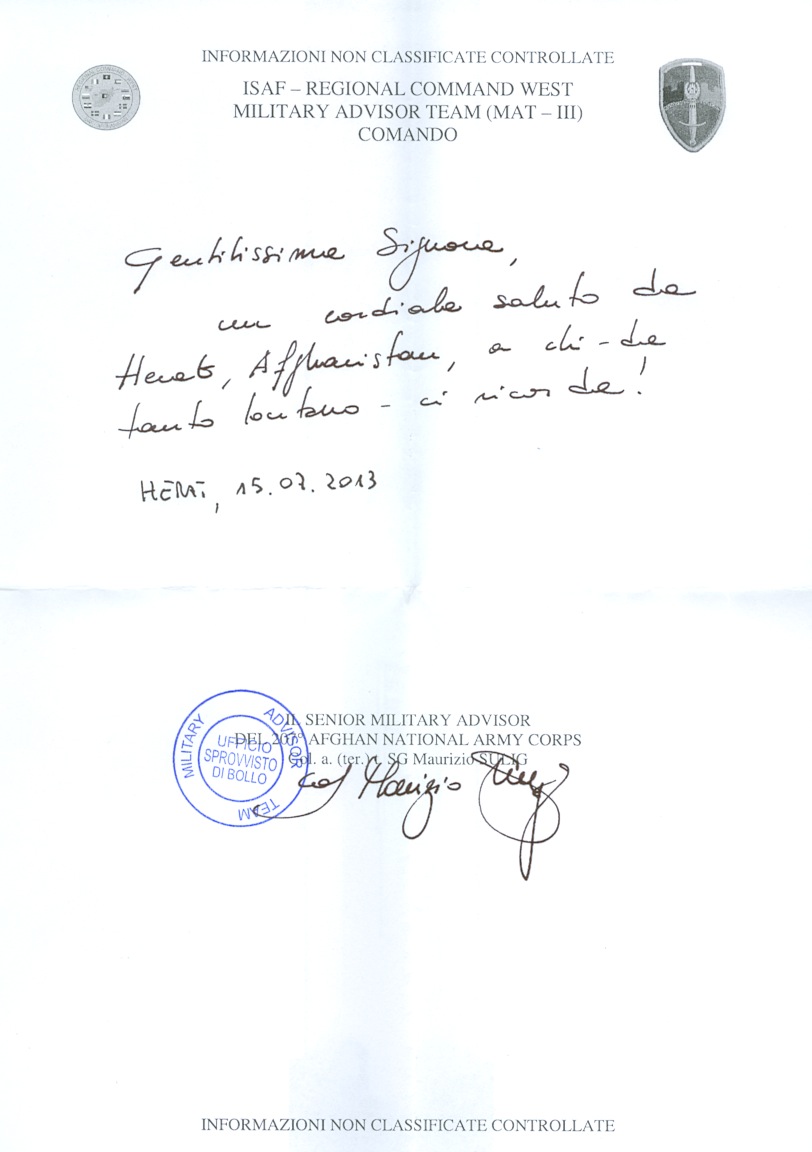 INFORMAZIONI NON CLASSIFICATE CONTROLLATE
ISAF – REGIONAL COMMAND WEST
MILITARY ADVISOR TEAM (MAT – III)
COMANDO
Gentilissima Signora,
un cordiale saluto da
Herat, Afghanistan, a chi - da
tanto lontano - ci ricorda!
HERAT, 15.07.2013
IL SENIOR MILITARY ADVISOR
DEL 207° AFGHAN NATIONAL ARMY CORPS
Col. a. (ter.) t. SG Maurizio SULIG
Col Maurizio
MILITARY ADVISOR TEAM
UFFICIO
SPROVVISTO
DI BOLLO
INFORMAZIONI NON CLASSIFICATE CONTROLLATE